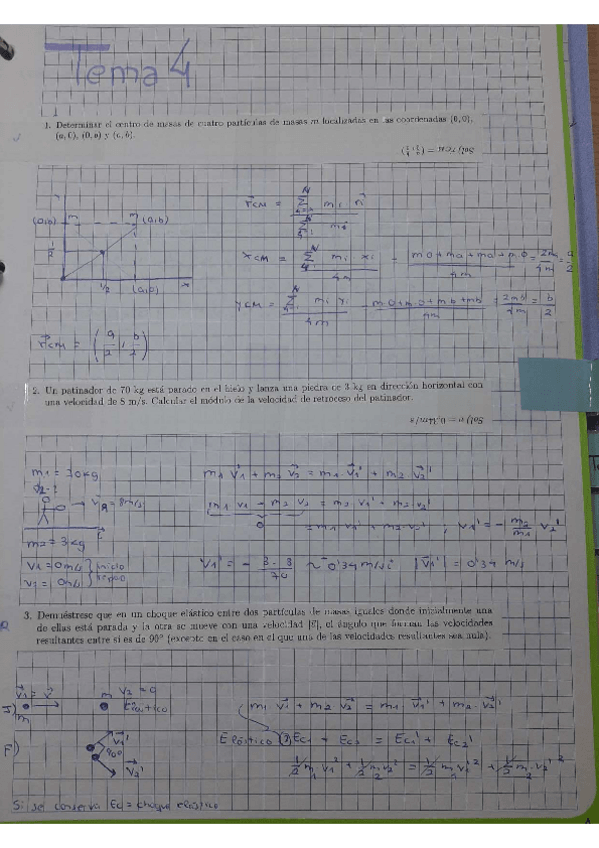 Tema 4
1. Determinar el centro de masas de cuatro partículas de masas m localizadas en las coordenadas (0, 0),
(a, 0), (0, b) y (a, b).
Sol) rCM = (a/2, b/2)
m m (a,b)
r⃗CM = Σ mi r⃗i / Σ mi
xCM = Σ mi · xi / 4m = m0 + ma + ma + m0 / 4m = 2ma / 4m = a/2
yCM = Σ mi yi / 4m = m0 + m0 + mb + mb / 4m = 2mb / 4m = b/2
r⃗CM = (a/2, b/2)
2. Un patinador de 70 kg está parado en el hielo y lanza una piedra de 3 kg en dirección horizontal con
una velocidad de 8 m/s. Calcular el módulo de la velocidad de retroceso del patinador.
m1 = 70kg
m1 v⃗1 + m2 v⃗2 = m1 v⃗1' + m2 v⃗2'
m1 v1 + m2 v2 = m1 v1' + m2 v2'
0
v1' = - m2/m1 v2'
m2 = 3kg
v1 = 0m/s
v2 = 0m/s
inicio
reposo
|v⃗1'| = 0'34 m/s
3. Demuéstrese que en un choque elástico entre dos partículas de masas iguales donde inicialmente una
de ellas está parada y la otra se mueve con una velocidad |v⃗|, el ángulo que forman las velocidades
resultantes entre sí es de 90° (excepto en el caso en el que una de las velocidades resultantes sea nula).
I) v⃗1 = v⃗ m
m v2 = 0
Elástico
m1 v⃗1 + m2 v⃗2 = m1 v⃗1' + m2 v⃗2'
F) v⃗1' 90° v⃗2'
Elástico Ec1 + Ec2 = Ec1' + Ec2'
1/2 m1 v1² + 1/2 m2 v2² = 1/2 m1 v1'² + 1/2 m2 v2'²
Si se conserva Ec = choque elástico